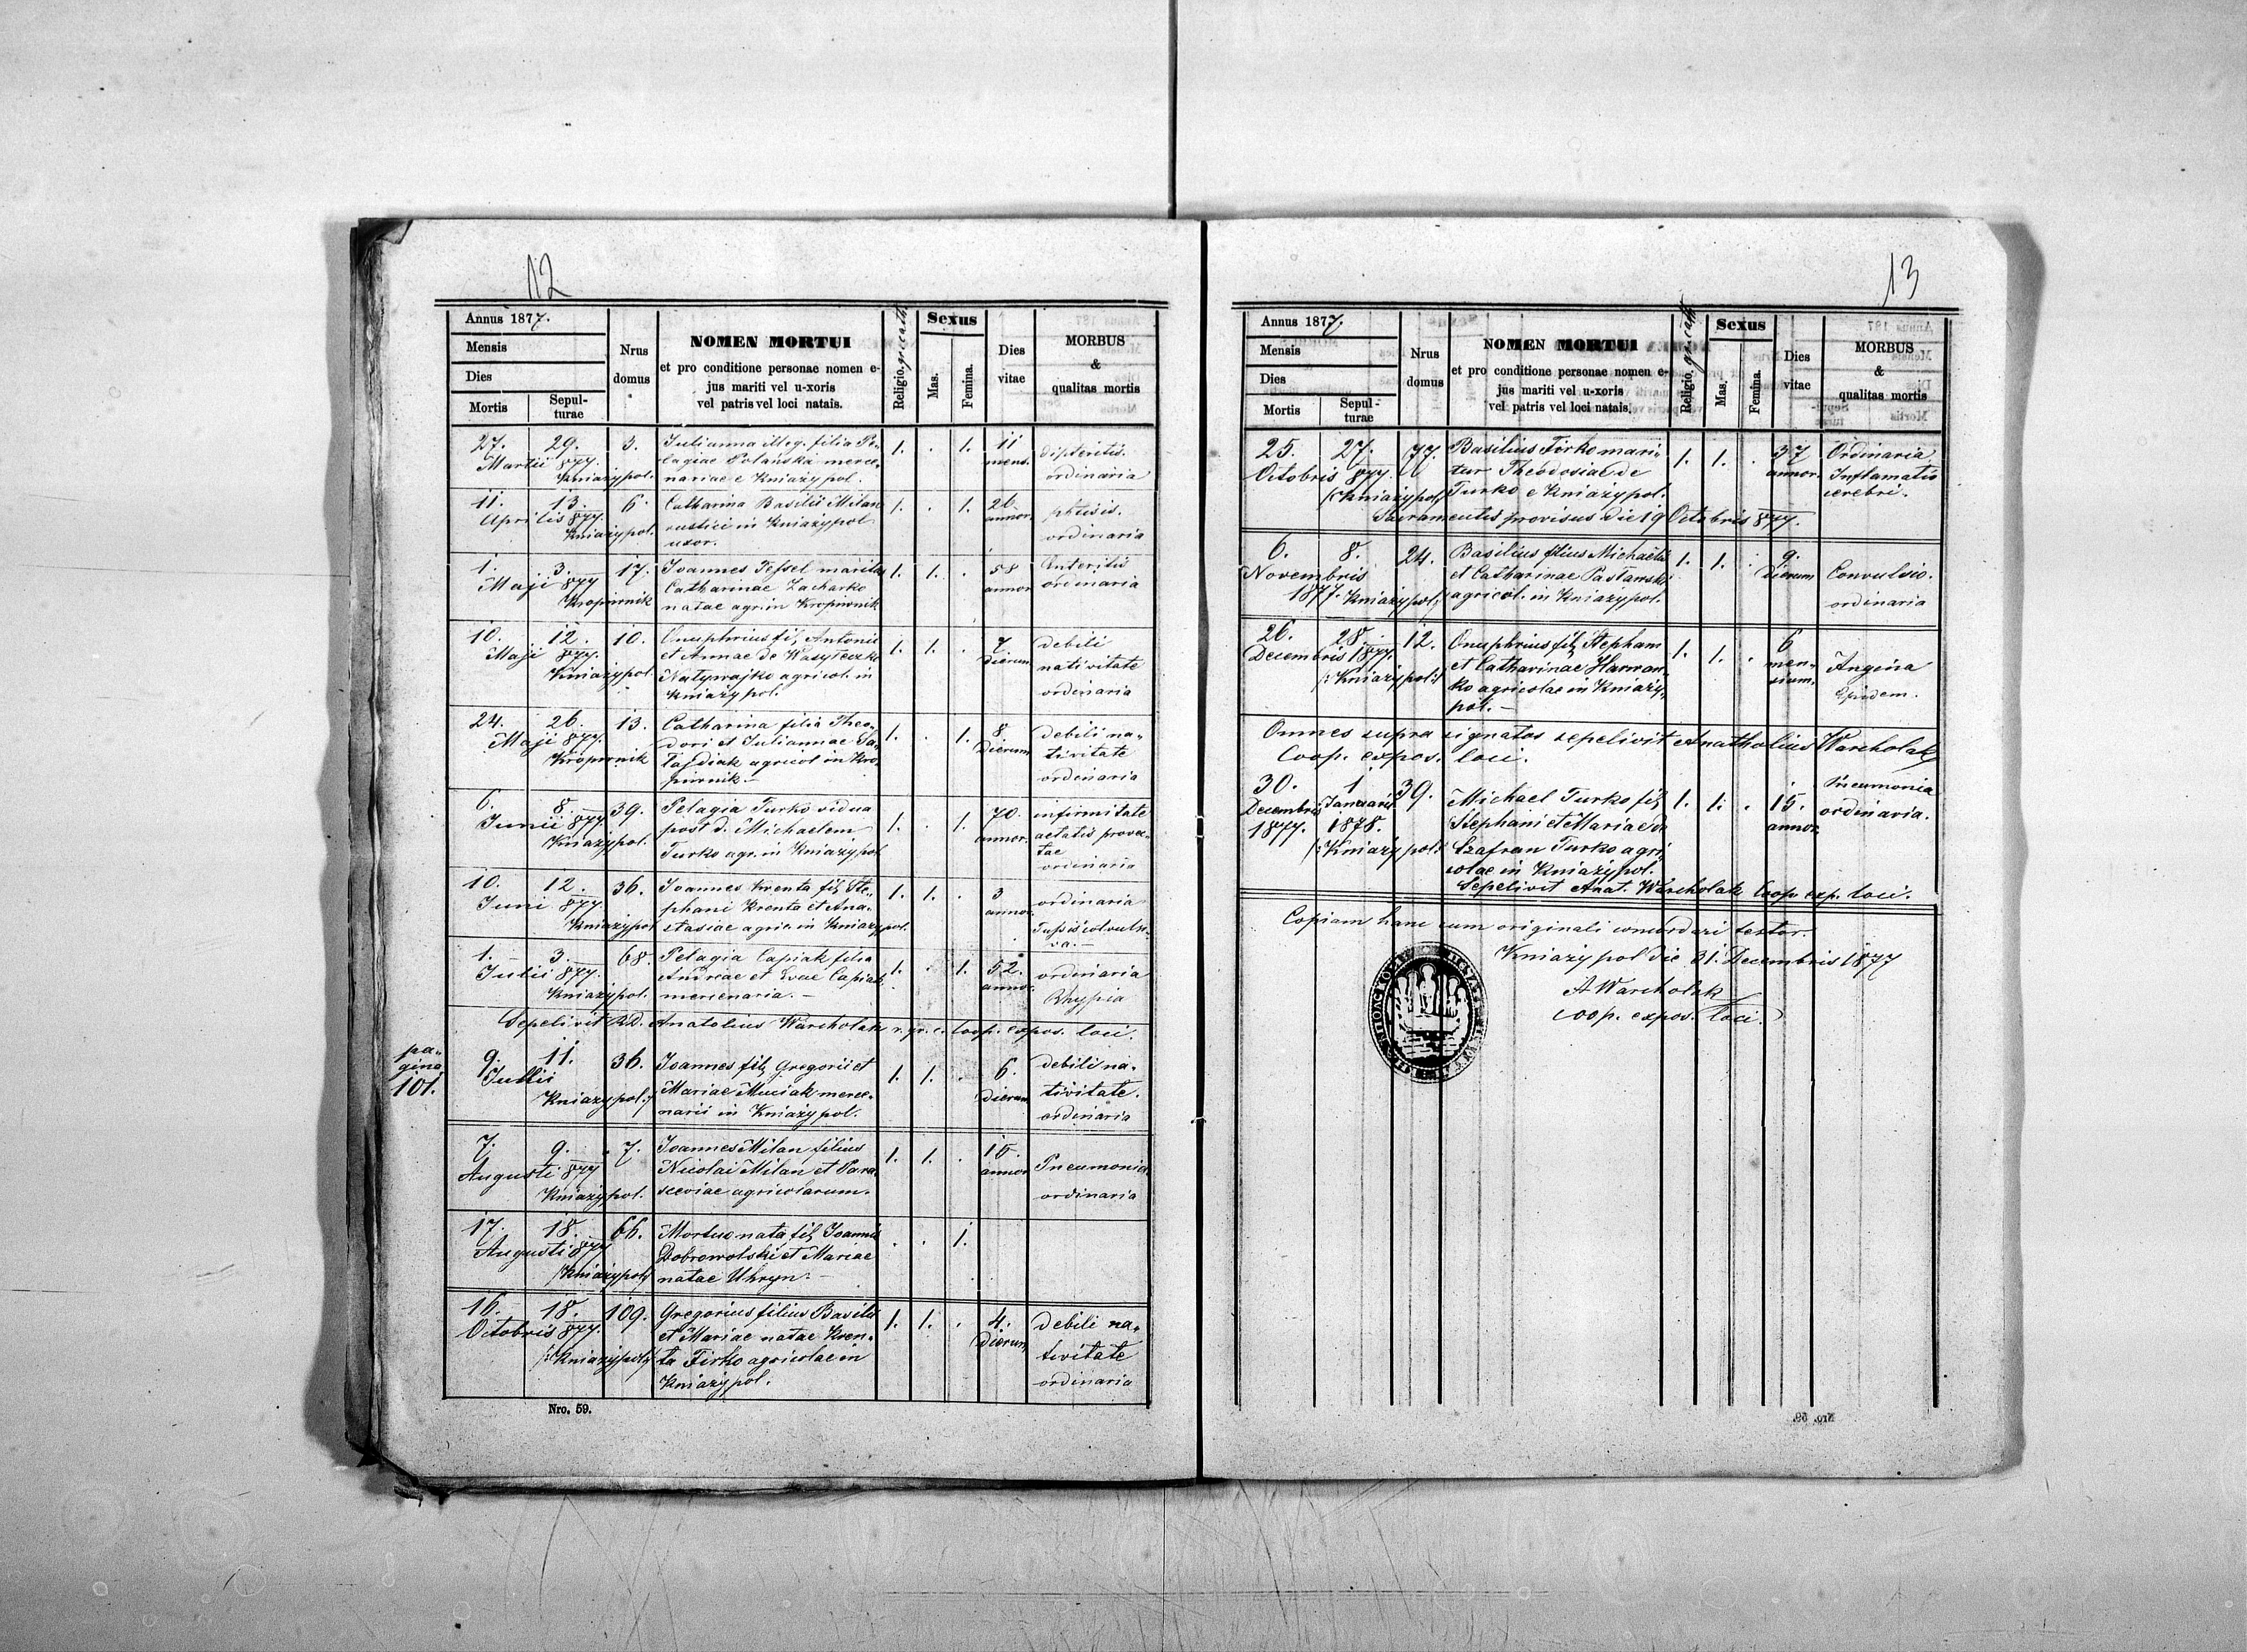 12
Annus 1877.
Mensis
Dies
Mortis
Sepul-
turae
Nrus
domus
NOMEN MORTUI
et pro conditione personae nomen e-
jus mariti vel u-xoris
vel patris vel loci natais.
Religio.
Sexus
Mas.
Femina.
Dies
vitae
MORBUS
&
qualitas mortis
27. 29. 3. Julianna illeg. filia Pe- 1. . 1. 11
Martii 877. lagiae Polańska merce- mens. dipteritis.
Kniażypol. nariae e Kniażypol. ordinaria
11. 13. 6 Catharina Basilii Milan 1. . 1. 26
Aprilis 877. rustici in Kniażypol annor. phtisis.
Kniażypol. uxor. ordinaria
1. 3. 17. Joannes maritus 1. 1. . 58 Enteritis
Maji 877 Catharinae Zacharko annor ordinaria
Kropiwnik natae agr. in Kropiwnik
10. 12. 10. Onuphrius fil. Antonii 1. 1. . 7 debili
Maji 877. et Annae de Wasyleczko dierum nativitate
Kniażypol agricol. in ordinaria
Kniażypol.
24. 26. 13. Catharina filia Theo- 1. . 1. 8. debili na-
Maji 877. dori et Juliannae Sa- dierum tivitate
Kropiwnik łajdiak agricol in Kro- ordinaria
piwnik -
6. 8. 39. Pelagia Turko vidua 1. . 1. 70. infirmitate
Junii 877 post d. Michaelem annor. aetatis provec-
Kniażypol. Turko agr. in Kniażypol tae
ordinaria
10. 12. 36. Joannes Krenta fil. Ste- 1. 1. . 3 ordinaria
Juni 877. phani Krenta et Ana- annor.
Kniażypol stasiae agric. in Kniażypol. Tussis convulsi-
va. -
1. 3. 68. Pelagia Capiak filia 1. . 1. 52. ordinaria
Julii 877. Andreae et Evae Capiak annor.
Kniażypol. mercenaria. - Rhypia
Sepelivit Rd. Anatolius Warcholak r. gr. c. Coop. expos. loci.
pa-
gina
101.
9. 11. 36. Joannes fil. Gregorii et 1. 1. . 6. debili na-
Julii Mariae Muciak merce- dierum tivitate.
Kniażypol. narii in Kniażypol. ordinaria
7. 9. 7. Joannes Milan filius 1. 1. . 15.
Augusti 877 Nicolai Milan et Para- annor Pneumonia
Kniażypol. sceviae agricolarum. ordinaria
17. 18. 66. Mortuo nata fil. Joannis . . 1.
Augusti 877 Dobrowolski et Mariae
/Kniażypol/ natae Uhryn. -
16. 18. 109. Gregorius filius Basilii 1. 1. . 4. debili na-
Octobris 877. et Mariae natae Kren- dierum tivitate
/:Kniażypol:/ ta Firko agricolae in ordinaria
Kniażypol.
Nro. 59.
13
Annus 1877.
Mensis
Dies
Mortis
Sepul-
turae
Nrus
domus
NOMEN MORTUI
et pro conditione personae nomen e-
jus mariti vel u-xoris
vel patris vel loci natais.
Religio.
Sexus
Mas.
Femina.
Dies
vitae
MORBUS
&
qualitas mortis
25. 27. 77. Basilius Firko mari- 1. 1. . 37 Ordinaria
Octobris 877. tus Theodosiae de annor. Inflamatio
/:Kniażypol:/ Turko e Kniażypol. cerebri.
Sacramentis provisus die 19 Octobris 877.
6. 8. 24. Basilius filius Michaelis 1. 1. . 9.
Novembris et Catharinae Pasławski dierum Convulsio.
1877. Kniażypol. agricol. in Kniażypol. ordinaria
26. 28. 12. Onuphrius fil. Stephani 1. 1. . 6
Decembris 1877. et Catharinae Hawran- men- Angina
/:Kniażypol:/ ko agricolae in Kniaży- sium. Epidem.
pol. -
Omnes supra signatos sepelivit Anatholius Warcholak
Coop. expos. loci.
30. 1 39. Michael Turko fil. 1. 1. . 15. Pneumonia
Decembris Januarii Stephani et Mariae de annor. ordinaria.
1877. 1878. Szafran Turko agri-
/:Kniażypol:/ colae in Kniażypol.
Sepelivit Anat. Warcholak Coop. exp. loci.
Copiam hanc cum originali concordari testor.
Kniażypol die 31. Decembris 1877
A Warcholak
coop. expos. loci.